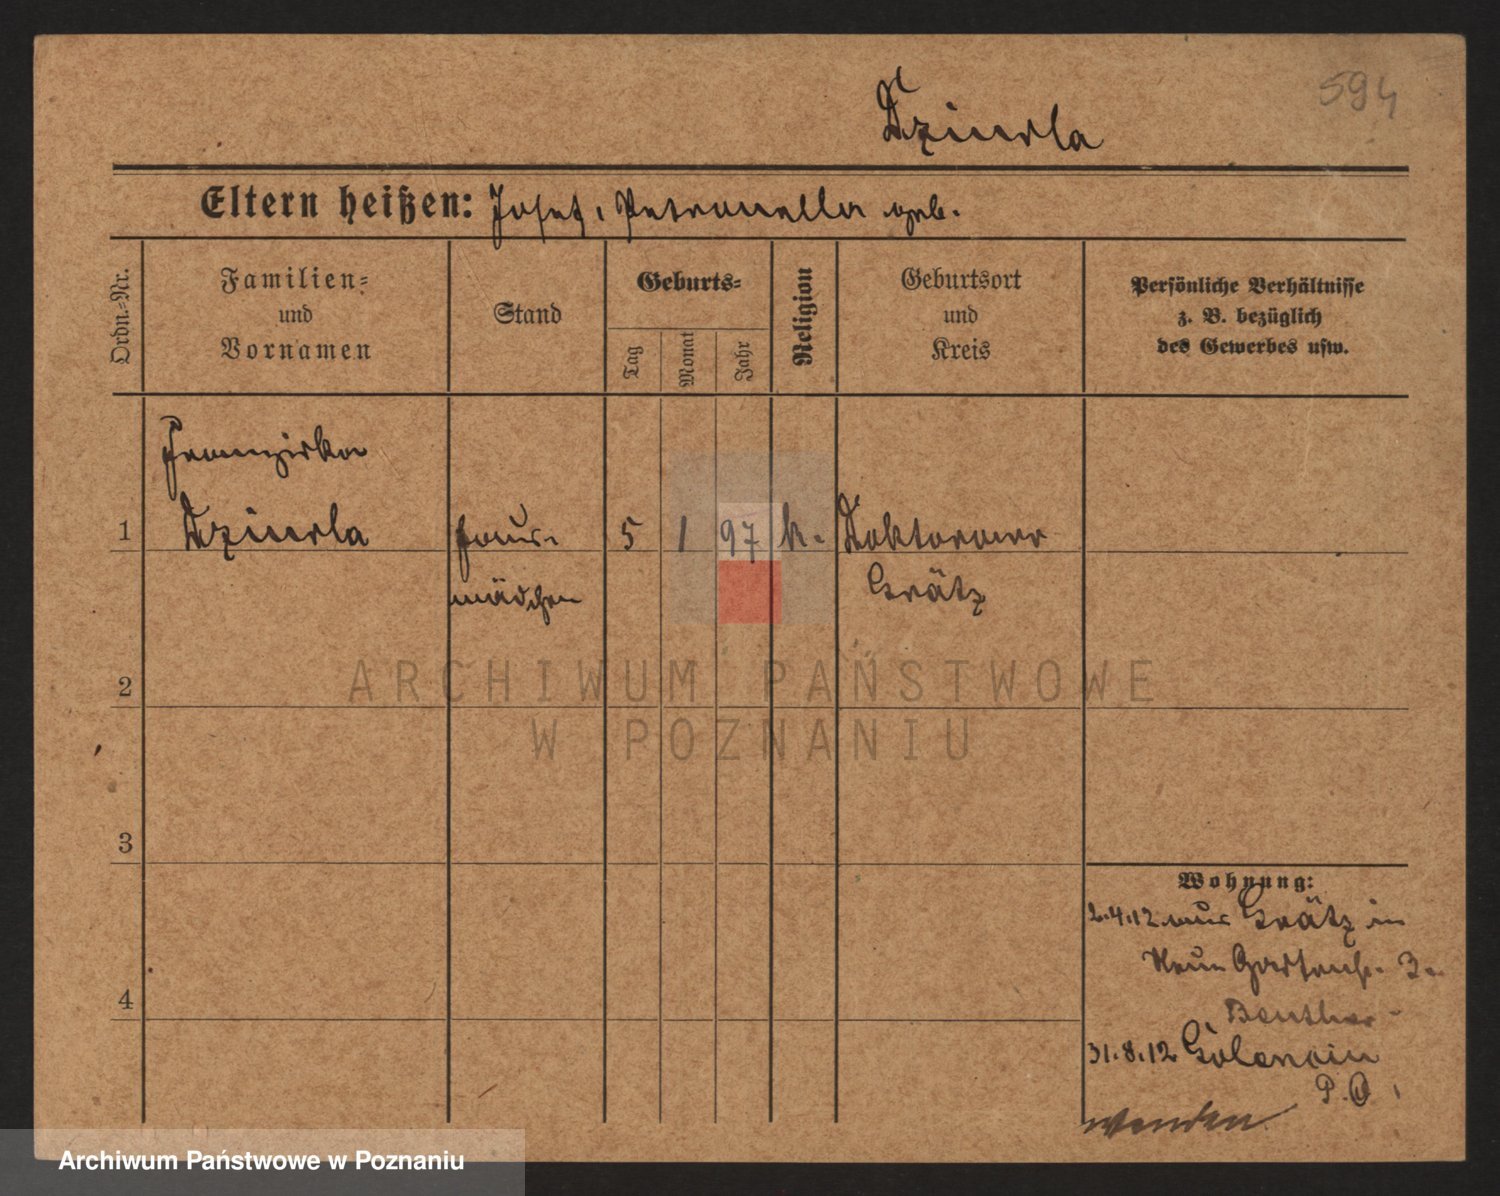 594
Dziurla
Eltern heißen: Josef, Petronella geb.
Ordn.-Nr.
Familien-
und
Vornamen
Stand
Geburts-
Tag
Monat
Jahr
Religion
Geburtsort
und
Kreis
Persönliche Verhältnisse
z. B. bezüglich
des Gewerbes usw.
Franziska
1 Dziurla Haus- 5 1 97 k. Doktorowo
mädchen Grätz
2
ARCHIWUM PAŃSTWOWE
W POZNANIU
3
Wohnung:
2.4.12 aus Grätz in
Neue Gartenstr.
4
31.8.12
P. O.
wenden
Archiwum Państwowe w Poznaniu